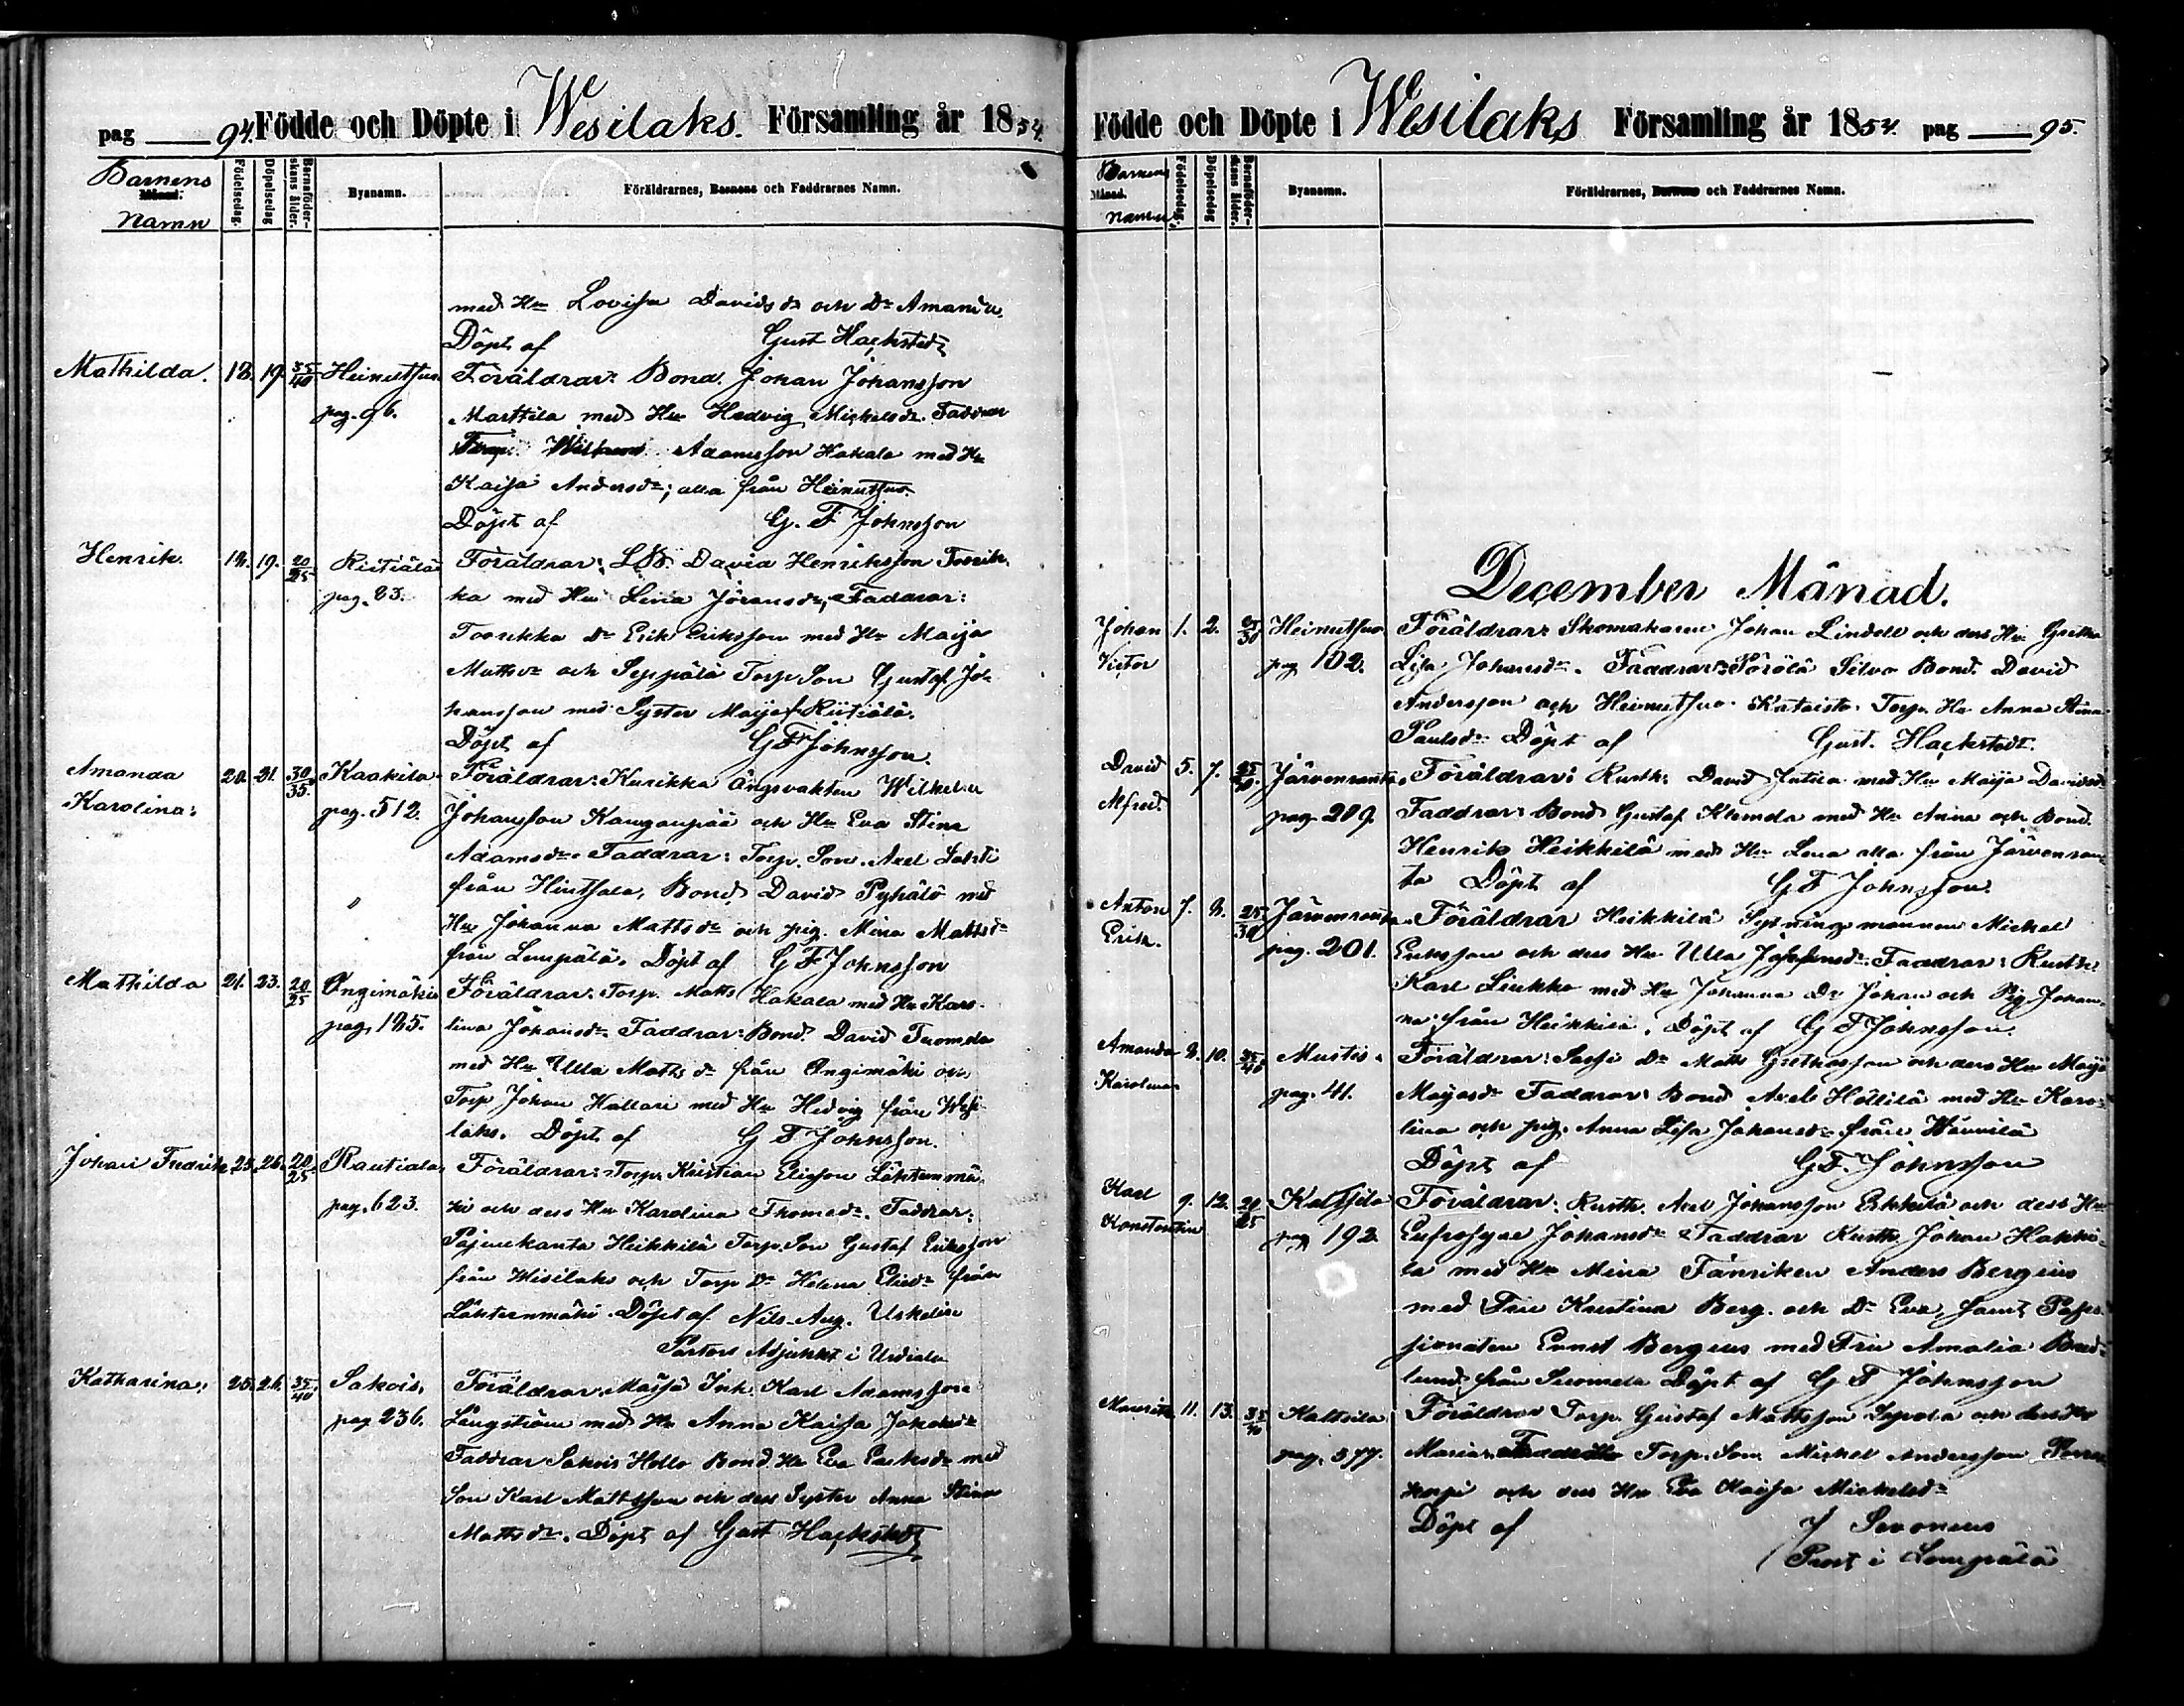 pag 94. Födde och Döpte i Wesilaks. Församling år 1854.
Barnens
Månad.
Namn
Födelsedag.
Döpelsedag
Barnaföder-
skans ålder.
Byanamn.
Föräldrarnes, Barnens och Faddrarnes Namn.
med Hu Lovisa Davids dr och Dr Amanda.
Döpt af Gust Hackstedt
Mathilda. 18. 19. 35/40 Heinuthsuo Föräldrar: Bond. Johan Johansson
pag. 96. Marttila med Hu Hedvig Michelsdr. Faddrar
Torp. Adamsson Hakala med Hu
Kaisa Andersdr; alla från Heinuthsuo.
Döpt af G. F Johnsson
Henrik. 18. 19. 20/25 Riitiälä Föräldrar: LB. David Henriksson Toorik-
pag. 83. ka med Hu Lena Jöransdr; Faddrar:
Toorikka Dr Erik Eriksson med Hu Maija
Mattsdr och Seppälä Torp. Son Gustaf Jo-
hansson med Syster Maija f. Riitiälä.
Döpt af G F Johnsson.
Amanda 20. 21. 30/35 Kaakila Föräldrar: Kurikka Ängsvakten Wilhelm
Karolina. pag. 512. Johansson Kangaspää och Hu Eva Stina
Adamsdr. Faddrar: Torp. Son. Axel Lahti
från Hintsala, Bond. David Pyhältö med
Hu Johanna Mattsdr och pig. Mina Mattsdr
från Lempälä. Döpt af G F Johnsson
Mathilda 21. 23. 20/25 Ongimäki Föräldrar: Torp. Matts Hakala med Hu Karo-
pag. 185. lina Johansdr Faddrar: Bond. David Tuomela
med Hu Ulla Mattsdr från Ongimäki och
Torp Johan Hallari med Hu Hedvig från Wesi-
laks. Döpt af G F Johnsson.
Johan Fredrik 25. 26. 20/25 Rautiala Föräldrar: Torp. Kristian Elisson Lähteenmä-
pag. 623. ki och dess Hu Karolina Thomasdr. Faddrar:
Pajuukanta Heikkilä Torp. Son Gustaf Eriksson
från Wesilaks och Torp Dr Helena Elisdr från
Lähteenmäki. Döpt af Nils Aug. Uskelin
Pastors Adjunkt i Urdiala
Katharina. 25. 26. 35/40 Sakois, Föräldrar: Maisa Inh. Karl Adamsson
pag 236. Långström med Hu Anna Kaisa Jakobsdr
Faddrar Sakois Hollo Bond. Hu Eva Eriksdr med
Son Karl Mattsson och dess Syster Anna Stina
Mattsdr. Döpt af Gust Hackstedt
Födde och Döpte i Wesilaks Församling år 1854. pag 95.
Barnens
Månad.
Namn
Födelsedag.
Döpelsedag
Barnaföder-
skans ålder.
Byanamn.
Föräldrarnes, Barnens och Faddrarnes Namn.
December Månad.
Johan 1. 2. 25/30 Heinuthsuo Föräldrar: Skomakaren Johan Lindell och dess Hu Gretha
Victor pag 102. Lisa Johansdr. Faddrar: Pörölä Silvo Bond. David
Andersson och Heinuthsuo Kataisto Torp. Hu Anna Stina
Paulsdr Döpt af Gust. Hackstedt.
David 5. 7. 25/30 Järvenranta Föräldrar: Rusth. David Jutila med Hu Maija Davidsdr
Alfred. pag 209. Faddrar: Bond Gustaf Klemola med Hu Anna och Bond.
Henrik Heikkilä med Hu Lena alla från Järvenran-
ta Döpt af G F Johnsson.
Anton 7. 8. 25/30 Järvenranta Föräldrar Heikkilä Sytningsmannen Michel
Erik. pag. 201. Eriksson och dess Hu Ulla Josefinsdr Faddrar: Rusth.
Karl Liukko med Hu Johanna Dr Johan och Pig Johan-
na från Heikkilä. Döpt af G F Johnsson.
Amanda 8. 10. 35/40 Mustis. Föräldrar: Dr Matts Grethasson och dess Hu Maija
Karolina pag. 41. Majasdr Faddrar: Bond Axel Höllilä med Hu Karo-
lina och pig. Anna Lisa Johansdr från Wännilä
Döpt af G F. Johnsson
Karl 9. 12. 20/25 Kaltsila Föräldrar: Rusth. Axel Johansson Erkkilä och dess Hu
Konstantin pag 192. Eufrosyne Johansdr Faddrar Rusth Johan Hakki-
la med Hu Mina Fänriken Anders Bergius
med Fru Kristina Berg. och Dr Eva, samt Poses-
sionaten Ernst Bergius med Fru Amalia
lund från Suomela Döpt af G F Johnsson
Mauritz 11. 13. 35/40 Kaltsila Föräldrar Torp. Gustaf Mattsson Seppola och dess Hu
pag. 577. Maria. Faddrar Torp. Son Michel Andersson
korpi och dess Hu Eva Kaisa Michelsdr
Döpt af J Savonius
Prost i Lempälä